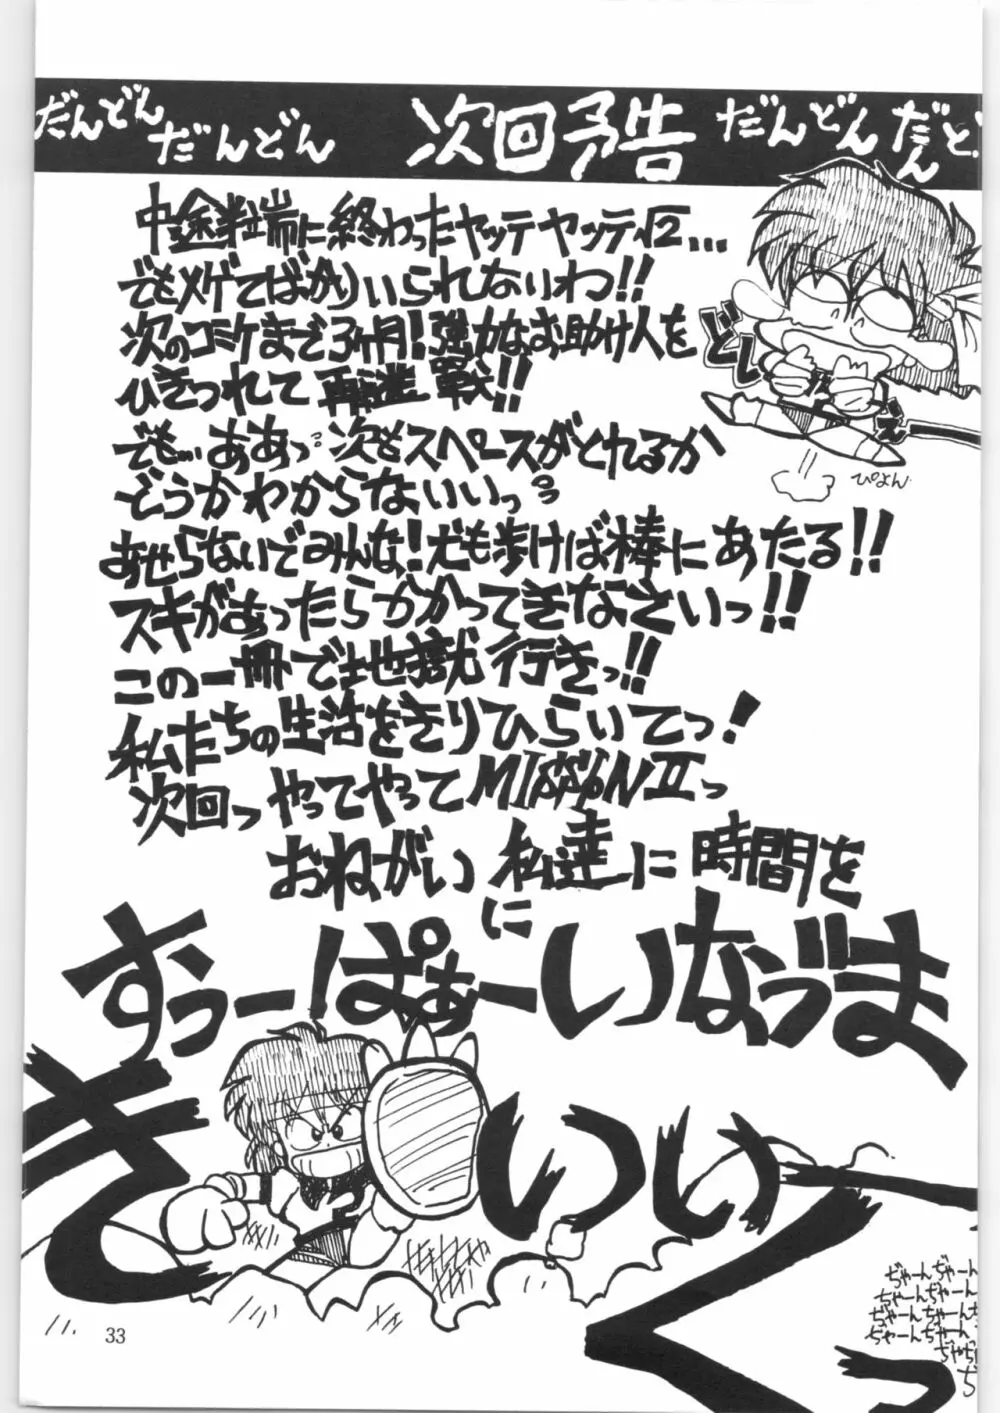 だんどん だんどん 次回予告 だんどん だんど
中途半端に終わったヤッテヤッテ√2…
でもメゲてばかりいられないわ!!
次のコミケまで3ヶ月!強力なお助け人を
ひきつれて再進戦!!
でも…ああっ…次もスペースがとれるか
どうかわからないいっ…
あせらないでみんな!犬も歩けば棒にあたる!!
スキがあったらかかってきなさいっ!!
この一冊で地獄行きっ!!
私たちの生活をきりひらいてっ!
次回っやってやってMISSION IIっ
おねがい私達に時間を
に
すぅーぱぁーいなづま
きいぃっく
ぴょん
ぢゃーんぢゃーん
ぢゃーんぢゃーん
ぢゃーんぢゃーん
ぢゃーんぢゃーん
ぢゃぢ
ぢ
33